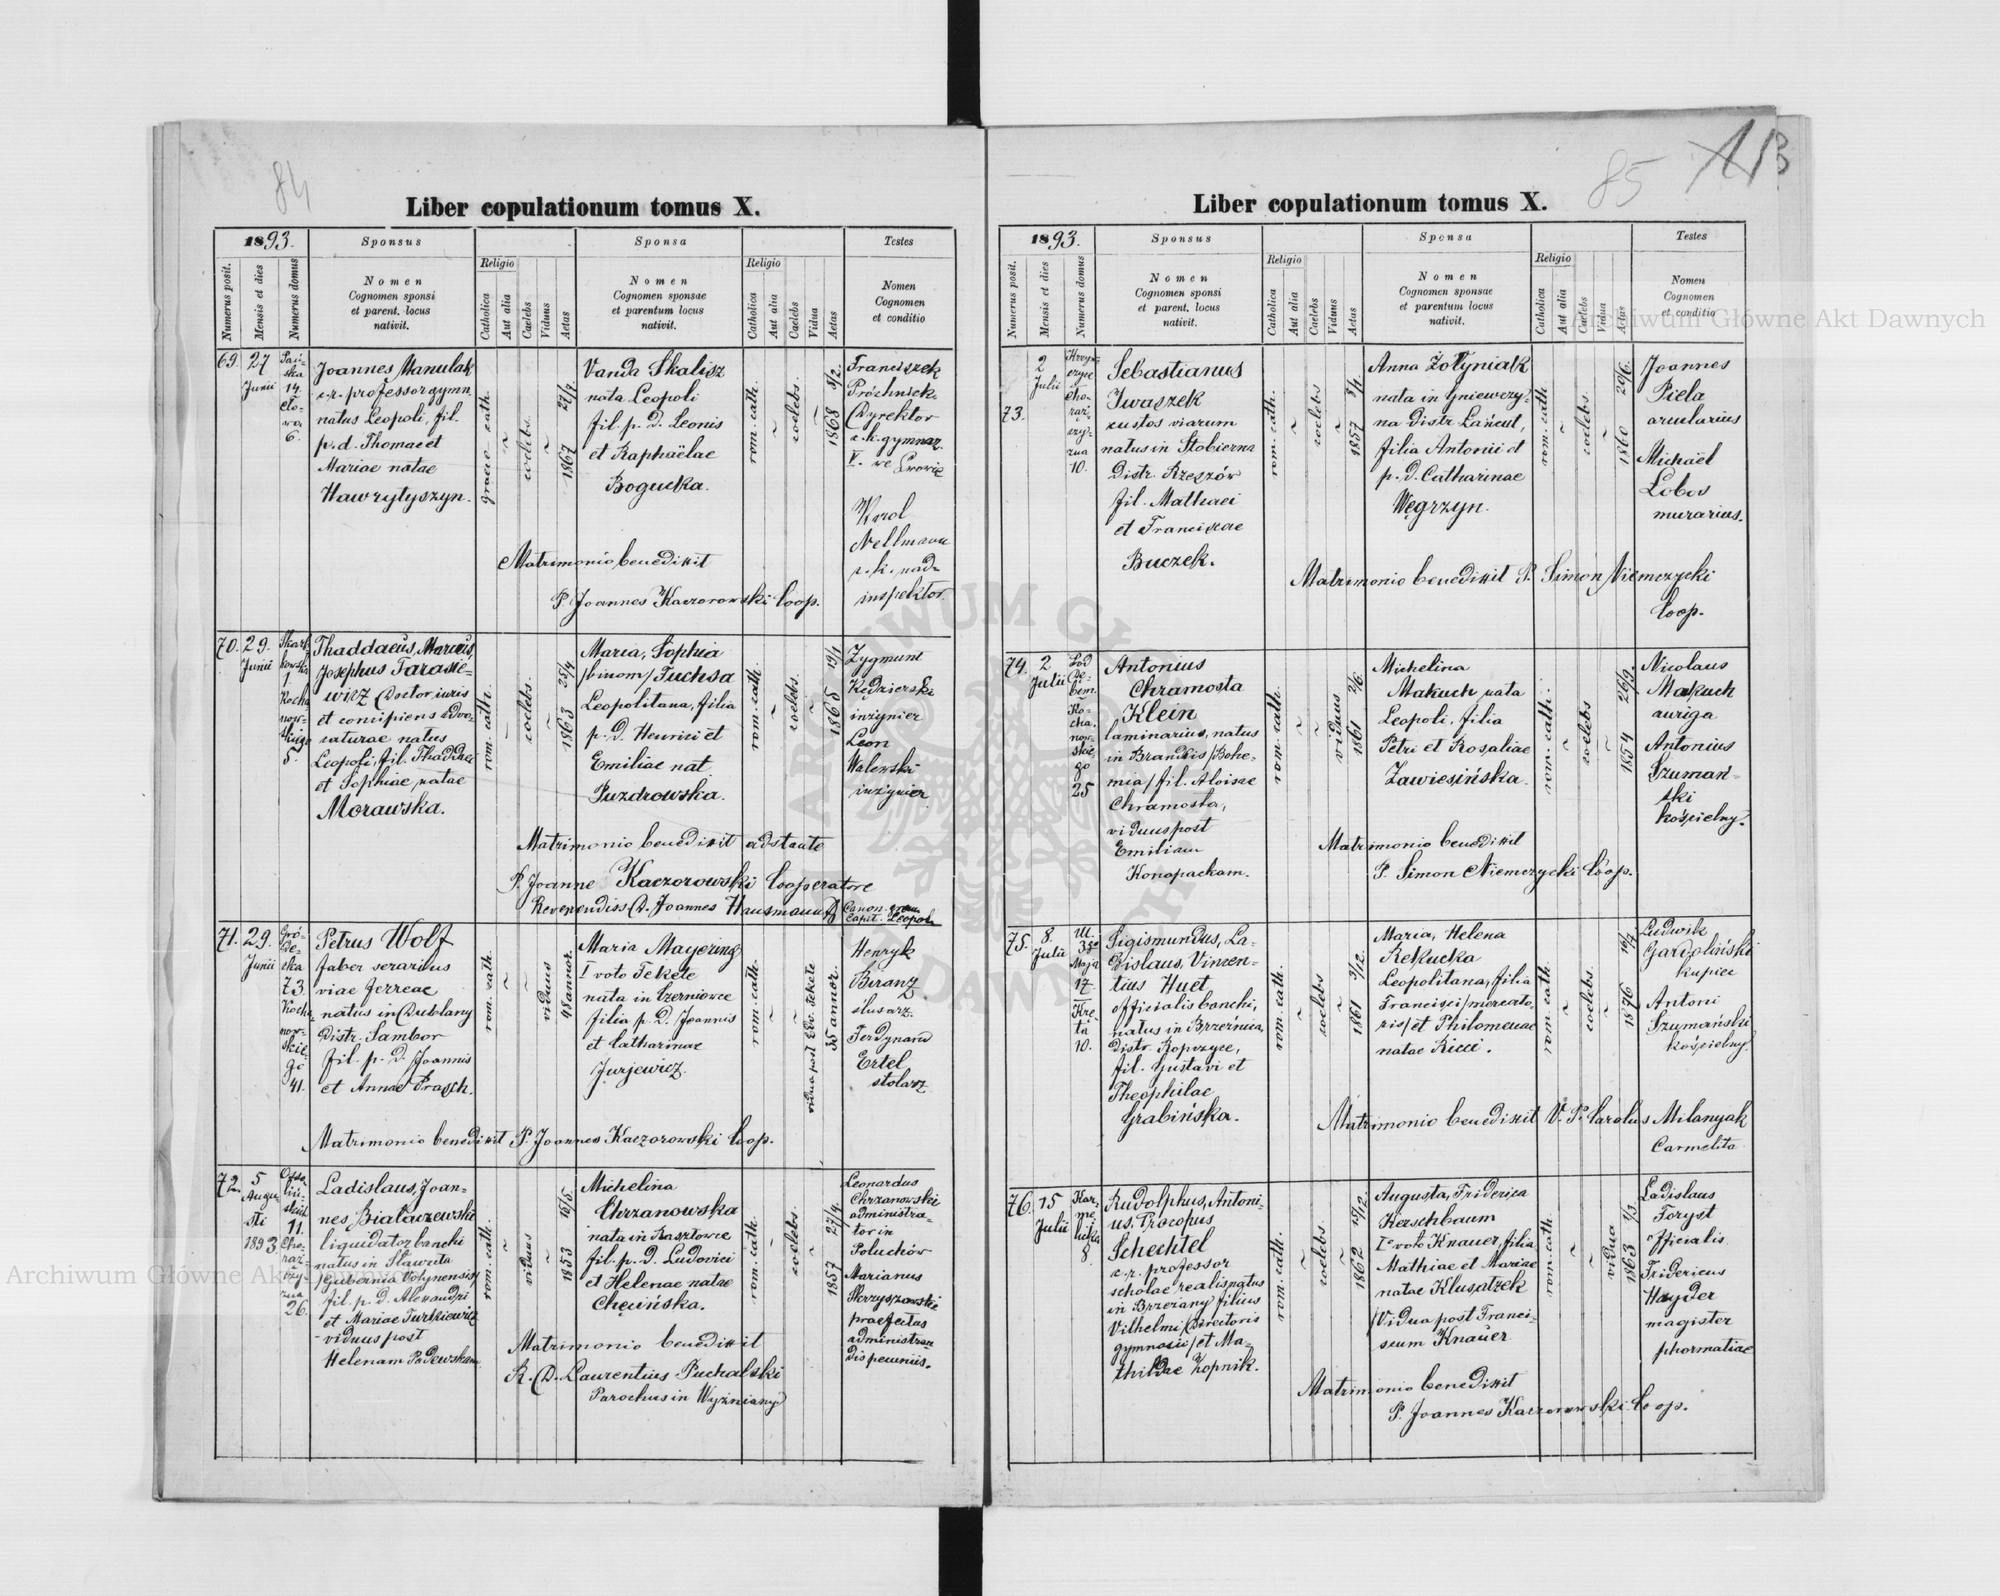 84
Liber copulationum tomus X.
1893.
Sponsus
Sponsa
Testes
Numerus posit.
Mensis et dies
Numerus domus
Nomen
Cognomen sponsi
et parent. locus
nativit.
Religio
Catholica
Aut alia
Caelebs
Viduus
Aetas
Nomen
Cognomen sponsae
et parentum locus
nativit.
Religio
Catholica
Aut alia
Caelebs
Vidua
Aetas
Nomen
Cognomen
et conditio
69. 27
Junii
14.
6.
Joannes Manulak
c.r. professor gymn.
natus Leopoli, fil.
p. d. Thomae et
Mariae natae
Hawrylyszyn.
graeco cath.
coelebs.
1867 27/9
Vanda Skalisz
nata Leopoli
fil. p. D. Leonis
et Raphaëlae
Bogucka.
rom. cath.
coelebs.
1868 8/2.
Franciszek
Próchnick.
Dyrektor
c. k. gymnaz.
V. we Lwowie
Karol
Nellmann
c. k. nad-
inspektor.
Matrimonio benedixit
P. Joannes Kaczorowski Coop.
70. 29.
Junii
Skarb-
kowska
1.
Kocha-
now-
skiego
5.
Thaddaeus, Marcus,
Josephus Tarasie-
wicz Doctor iuris
et concipiens advo-
caturae natus
Leopoli, fil. Thaddaei
et Sophiae natae
Morawska.
rom. cath.
coelebs.
1863 25/4
Maria, Sophia
/binom/ Fuchsa
Leopolitana, filia
p. D. Henrici et
Emiliae nat
Puzdrowska.
rom. cath.
coelebs.
1865 19/1
Zygmunt
Kędzierski
inżynier
Leon
Walewski
inżynier
Matrimonio benedixit adstante
P. Joanne Kaczorowski Cooperatore
Reverendiss. D. Joannes Hausmann
Canon. gram.
Capit. Leopol.
71. 29.
Junii
Gró-
de-
cka
73.
Kocha-
now-
skie-
go
41.
Petrus Wolf
faber serarius
viae ferreae
natus in Dublany
Distr. Sambor
fil. p. D. Joannis
et Annae Prasch.
rom. cath.
viduus
48 annor.
Maria Mayering
I voto Fekete
nata in Czerniowce
filia p. D. Joannis
et Catharinae
Jurjewicz.
rom. cath.
vidua post Edv. Fekete
35 annor.
Henryk
Biranz
ślusarz.
Ferdynand
Ertel
stolarz
Matrimonio benedixit P. Joannes Kaczorowski Coop.
72. 5
Augu-
sti
1893.
Osso-
liń-
skich
11.
Cho-
raż-
czy-
zna
26.
Ladislaus, Joan-
nes Białaczewski
liquidator bancki
natus in Slawuta
/Gubernia Volynensis/
fil. p. D. Alexandri
et Mariae Turkiewicz
- viduus post
Helenam Padewskam
rom. cath.
viduus
1853 16/5.
Michelina
Chrzanowska
nata in Rasztowce
fil. p. D. Ludovici
et Helenae natae
Checińska.
rom. cath.
coelebs.
1857 27/9.
Leonardus
Chrzanowski
administra-
tor in
Poluchów
Marianus
Skrzyszowski
praefectus
administran
dis pecuniis.
Matrimonio benedixit
R. D. Laurentius Puchalski
Parochus in Wyżniany
85
Liber copulationum tomus X.
1893.
Sponsus
Sponsa
Testes
Numerus posit.
Mensis et dies
Numerus domus
Nomen
Cognomen sponsi
et parent. locus
nativit.
Religio
Catholica
Aut alia
Caelebs
Viduus
Aetas
Nomen
Cognomen sponsae
et parentum locus
nativit.
Religio
Catholica
Aut alia
Caelebs
Vidua
Aetas
Nomen
Cognomen
et conditio
73.
2
Julii
Cho-
raż-
czy-
zna
10.
Sebastianus
Iwaszek
custos viarum
natus in Stobierna
Distr. Rzeszów
fil. Mathaei
et Franciscae
Buczek.
rom. cath.
coelebs
1857 8/1.
Anna Żołyniak
nata in Gniewczy-
na Distr. Łańcut,
filia Antonii et
p. D. Catharinae
Węgrzyn.
rom. cath
coelebs.
1860 20/6.
Joannes
Piela
arcularius
Michaël
Lobos
murarius.
Matrimonio benedixit P. Simon Niemczycki
Coop.
74. 2.
Julii
Pod
Dę-
bem.
Ko-
cha-
now-
skie-
go
25
Antonius
Chramosta
Klein
laminarius, natus
in Brandeis /Bohe-
mia/ fil. Aloisae
Chramosta,
viduus post
Emiliam
Konopackam.
rom. cath.
viduus
1861 2/6.
Michelina
Makuch nata
Leopoli, filia
Petri et Rosaliae
Zawiesińska.
rom. cath.
coelebs
1854 26/9.
Nicolaus
Makuch
auriga
Antonius
Szumań-
ski
kościelny.
Matrimonio benedixit
P. Simon Niemczycki Coop.
75. 8.
Julii
Ul.
3go
Maja
17.
Krę-
ta
10.
Sigismundus, La-
dislaus, Vincen-
tius Huet
officialis banchi,
natus in Brzeźnica,
distr. Ropczyce,
fil. Gustavi et
Theophilae
Grabińska.
rom. cath.
coelebs
1861 3/12.
Maria, Helena
Rekucka
Leopolitana, filia
Francisci /mercato-
ris/ et Philomenae
natae Ricci.
rom. cath.
coelebs
1876 16/7.
Ludwik
Gardoliński
kupiec
Antoni
Szumański
kościelny.
Matrimonio benedixit V. P. Carolus Milanyak
Carmelita.
76. 15
Julii
Kar-
me-
licka
8.
Rudolphus, Antoni-
us, Procopus
Schechtel
c. r. professor
scholae realis natus
in Brzezany filius
Vilhelmi /Directoris
gymnasii/ et Ma-
thildae Zopnik.
rom. cath.
coelebs.
1862 15/12.
Augusta, Friderica
Kerschbaum
I° voto Knauer, filia
Mathiae et Mariae
natae Klusatzek
/Vidua post Franci-
scum Knauer
rom. cath.
vidua
1863 1/3.
Ladislaus
Foryst
officialis
Fridericus
Hayder
magister
pharmatiae
Matrimonio benedixit
P. Joannes Kaczorowski Coop.
Archiwum Główne Akt Dawnych
Archiwum Główne Akt Dawnych
ARCHIWUM GŁÓWNE AKT DAWNYCH